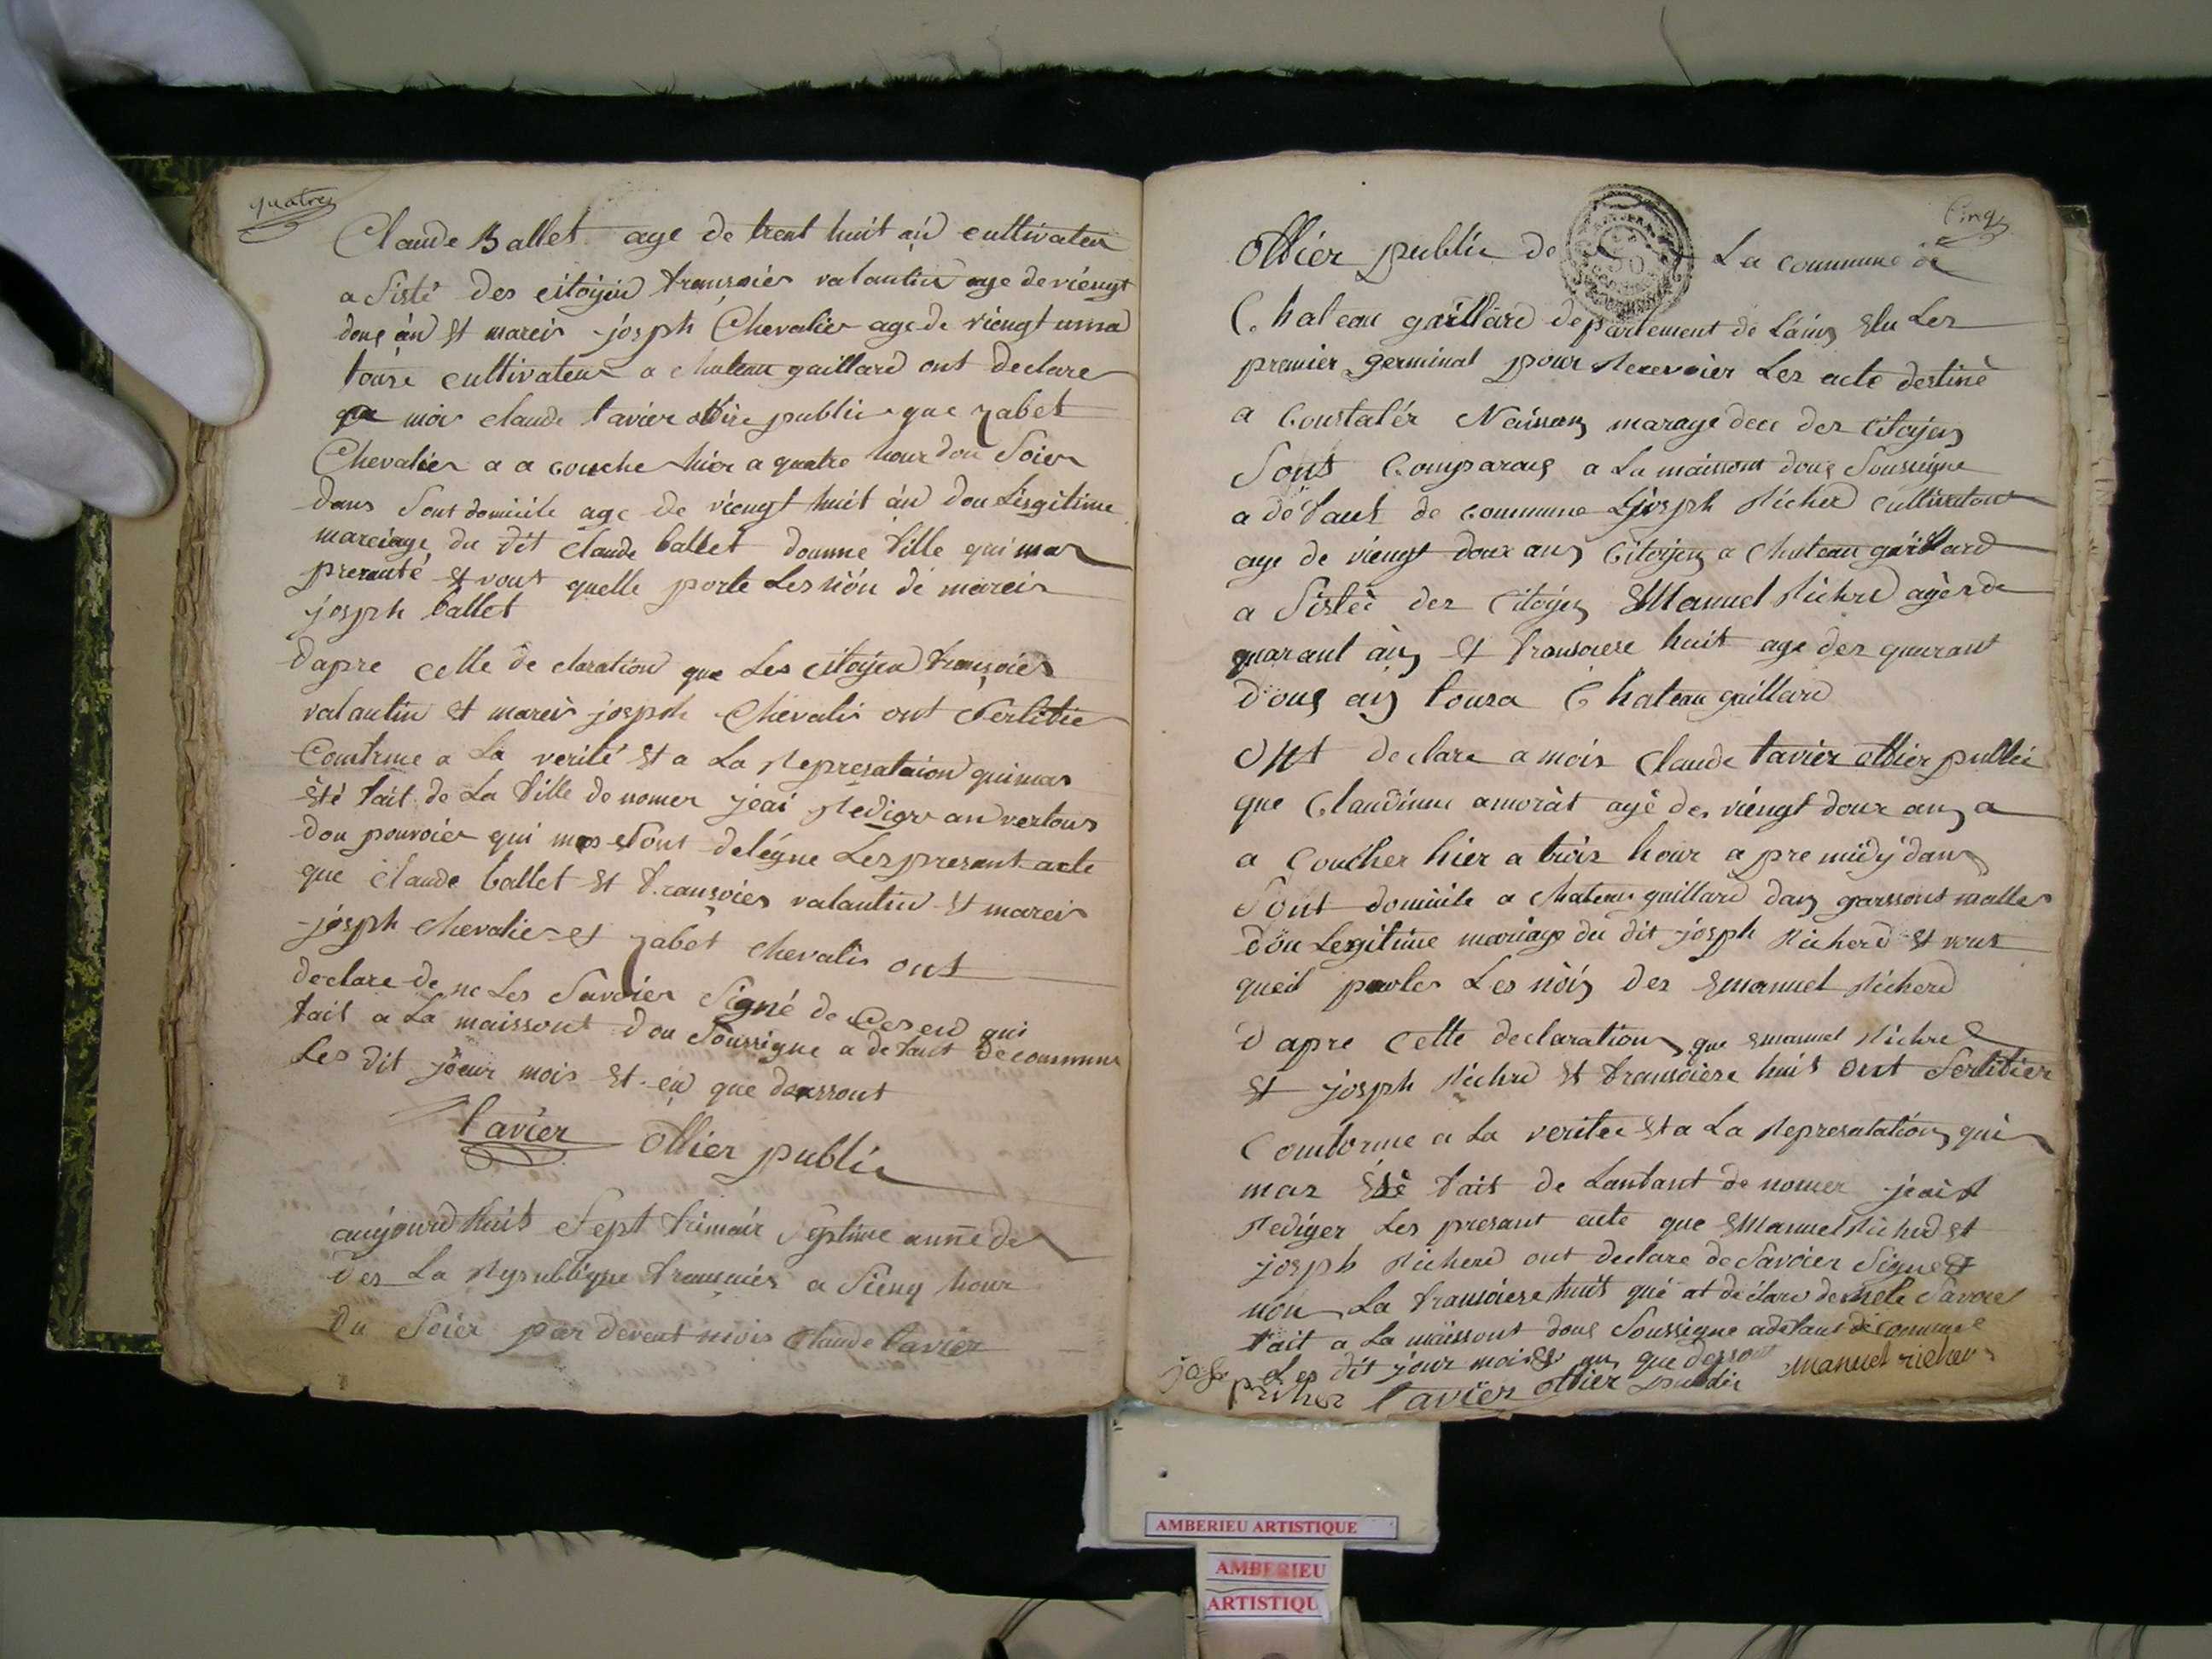 quatre
Claude Ballet age de trent huit an cultivateur
a sisté des citoyen fransoies valantin age de viengt
douç an et mareis josph Chevalier age de viengt un na
tousé cultivateur a chateau gaillard ont declare
que mois claude favier offiie public que zabet
Chevalier a a couche hier a quatre hour dou soier
dans sont domicile age de viengt huit an dou lesgitime
marciage du dit claude ballet donne fille qui mas
prerauté et vout quelle porte les nòn de mareis
josph ballet
dapre cette de claration que les citoyen fransoies
valantin et mareis josph Chevalir ont serlifie
Comfrme a la verité et a la represataion qui mas
été fait de la fille de nomer jeai rediger an vertous
dou pouvoier qui mas etont delégne les present acte
que claude ballet et fransoies valantin et mareis
josph chevalier et zabet chevalis ont
declare de ne les savoier signé de cesend qui
fait a la maissont dou soussigne a defaut de commune
les dit jöeur mois et an que daussout
favier offier public
aujourd huit sept frimair septime anné de
des la republique fransoies a sienq hour
du soier par devent mois claude favier
Cinq
offier public de la commune de
Chateau gaillard departement de lains elu les
premier germinal pour recevoier les acte destiné
a constatér naissans marage dece des citoyen
sont comparaus a la maissont douç soussigne
a défaut de commune josph richerd cultivatour
age de viengt doux ans citoyen a chateau gaillard
a sistéé des citoyen emanuel richerd agés de
quarant ans et fransoiese huit age des quarant
douç ans tousa Chateau gaillard
ont declare a mois claude favier offier public
que claudinne amoràt agé des viengt doux ans a
a coucher hier a trois hour a pre midy dans
sont domicile a chateau gaillard dans garssont malles
dou legitime mariage du dit josph richerd et vout
queil portes les nòn des emanuel richerd
d apre cette declaration que emanuel richerd
et josph richerd et fransoiese huit ont serlifier
comforme a la veritée et a la represatation qui
mas été fait de lanfant de nomer jeait
rediger les presant acte que emanuel richerd et
josph richerd ont declare de savoier signe et
non la fransoiese huit qui at déclare de ne le savoier
fait a la maissont douç soussigne a defaut de commune
les dit jour mois et an que dessout emanuel richer
josp richer favier offier public
AMBERIEU ARTISTIQUE
AMBERIEU
ARTISTIQU